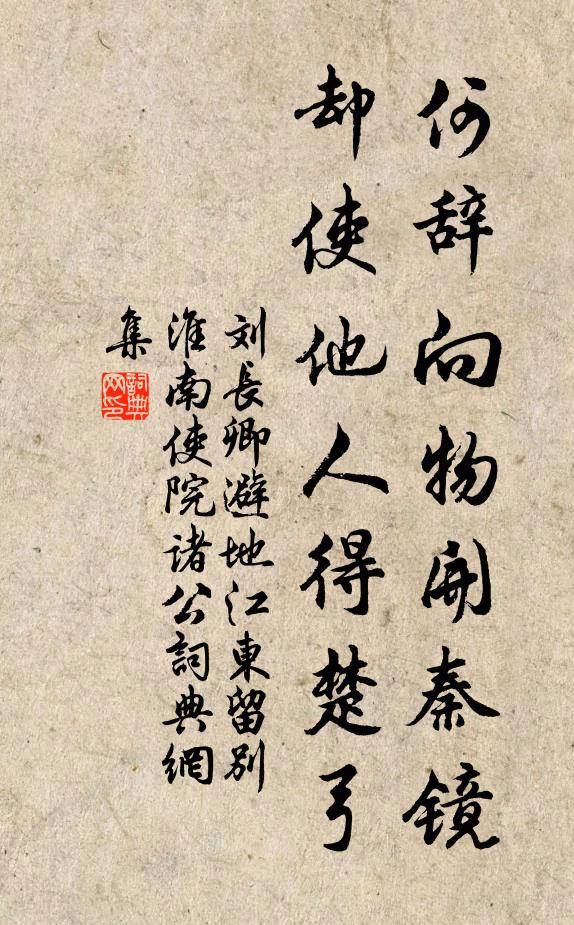 何辞向物開秦镜
却使他人得楚弓
刘長卿避地江東留别
淮南使院诸公詞典網
集
詞典
网印